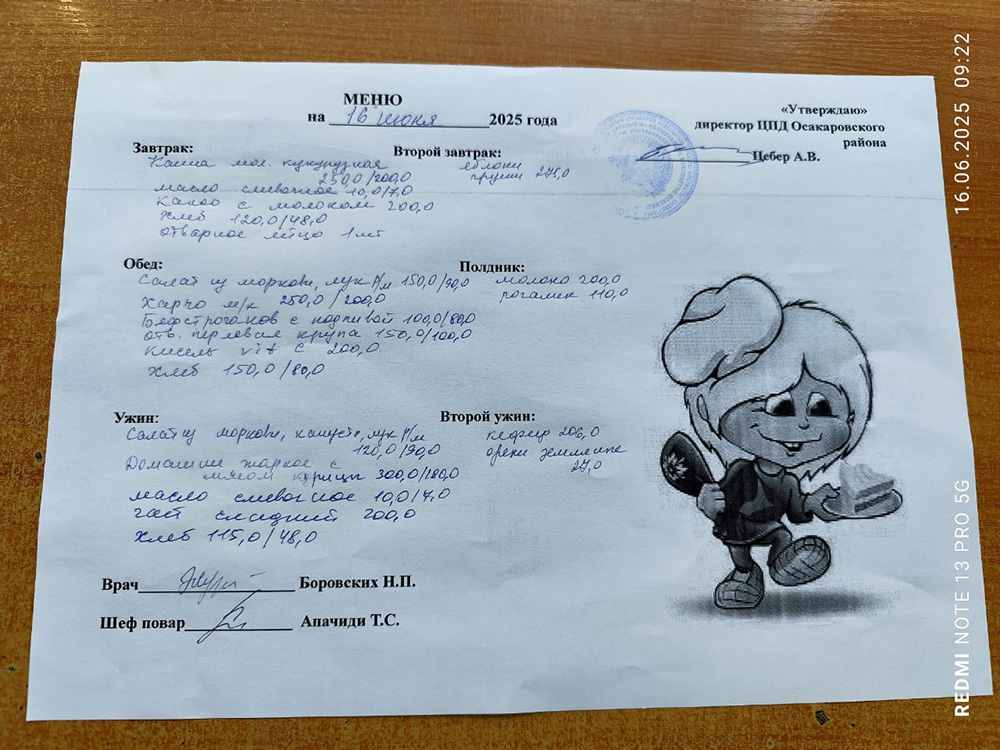 МЕНЮ
на 16 июня 2025 года
«Утверждаю»
директор ЦПД Осакаровского
района
Цебер А.В.
Завтрак:
Каша мол. кукурузная
250,0/200,0
масло сливочное 10,0/7,0
Какао с молоком 200,0
Хлеб 120,0/48,0
отварное яйцо 1шт
Второй завтрак:
яблоки
груши 271,0
Обед:
Салат из моркови, лук Р/м 150,0/90,0
Харчо м/к 250,0/200,0
Бефстроганов с подливой 100,0/80,0
отв. перловая крупа 150,0/100,0
Кисель vit C 200,0
Хлеб 150,0/80,0
Полдник:
молоко 200,0
рогалик 110,0
Ужин:
Салат из моркови, капусты, лук Р/м
120,0/90,0
Домашние жаркое с
мясом курицы 300,0/180,0
масло сливочное 10,0/7,0
чай сладкий 200,0
Хлеб 115,0/48,0
Второй ужин:
кефир 206,0
орехи земляные
27,0
Врач Боровских Н.П.
Шеф повар Апачиди Т.С.
16.06.2025 09:22
REDMI NOTE 13 PRO 5G